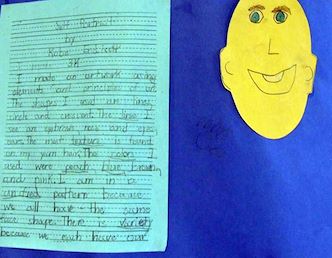 Self Portrait
by
3H
I made an artwork using
elements and principles of art.
The shapes I used are lines,
circle and crescent. The lines I
see are eyebrows, nose and eyes,
ears. The most texture is found
on my yarn hair. The colors I
used were peach, blue, brown,
and pink. I am in a
unified pattern because
we all have the same
face shape. There is variety
because we each have our